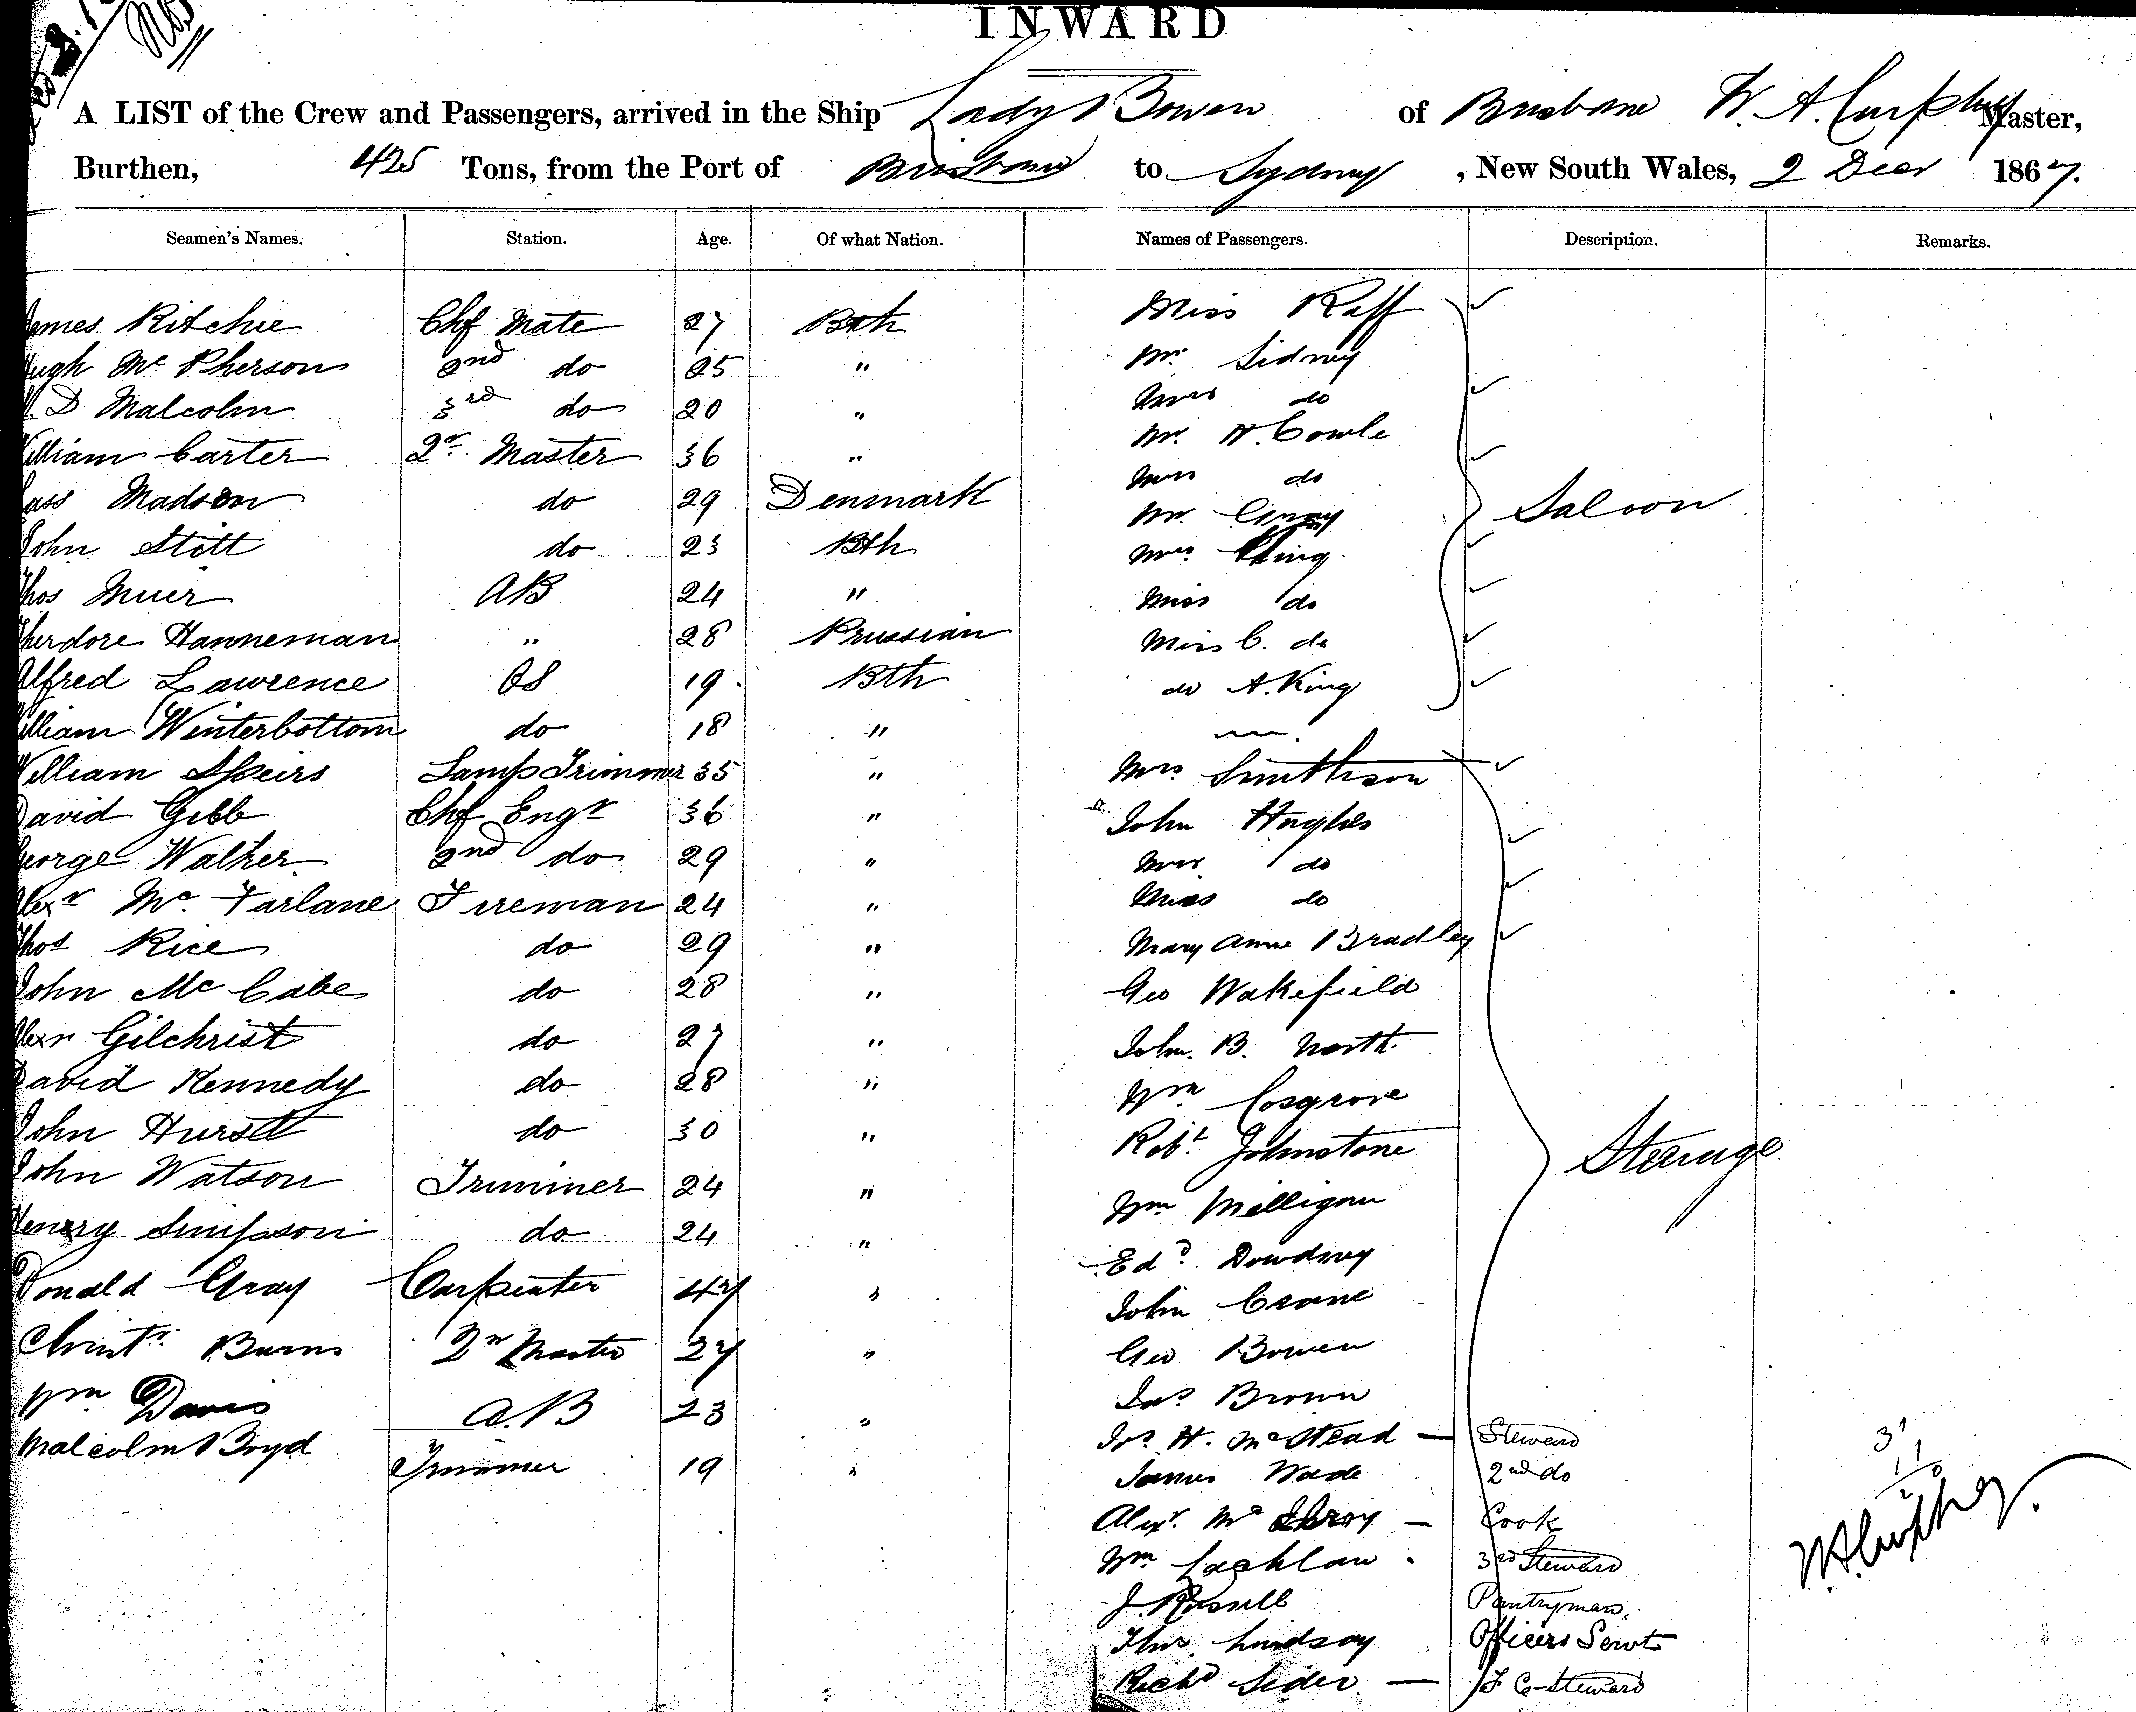 INWARD
A LIST of the Crew and Passengers, arrived in the Ship Lady Bowen of Brisbane W. A. Curphey Master,
Burthen, 425 Tons, from the Port of Brisbane to Sydney, New South Wales, 2 Decr 1867.
Seamen's Names. Station. Age. Of what Nation. Names of Passengers. Description. Remarks.
James Ritchie Chf Mate 27 Bth Miss Raff
Hugh McPherson 2nd do 25 " Mr Sidney
D Malcolm 3rd do 20 " Mrs do
William Carter Qr Master 36 " Mr. H. Cowle
Madson do 29 Denmark Mrs do
Saloon
John Stott do 23 Bth Mr. Gray
Mrs King
Thos Muir AB 24 " Miss do
Therdore Hanneman " 28 Prussian Miss C. do
Alfred Lawrence OS 19 Bth do A. King
William Winterbottom do 18 "
William Speirs Lamp Trimmer 35 " Mrs Smithson
David Gibb Chf Engr 36 " John Hughes
George Walker 2nd do 29 " Mrs do
Alexr McFarlane Fireman 24 " Miss do
Thos Rice do 29 " Mary Anne Bradley
John McCabe do 28 " Geo Wakefield
Alexr Gilchrist do 27 " John. B. North
David Kennedy do 28 " Wm Cosgrove
John Hurst do 30 " Robt Johnstone
Steerage
John Watson Trimmer 24 " Wm Milligan
Henry Simpson do 24 " Edd Dowdney
Donald Gray Carpenter 47 " John Crane
Christr Burns Qr Master 27 " Geo Bowen
Wm Davis A.B 23 " Jas Brown
Malcolm Boyd Trimmer 19 " Jos H. McStead — Steward
James Wade 2nd do
Alexr. McIlroy — Cook
Wm Lachlan 3rd Steward
J. Russell Pantryman
Thos Lindsay Officers Servt
Richd Sider — F C-Steward
W.A. Curphey